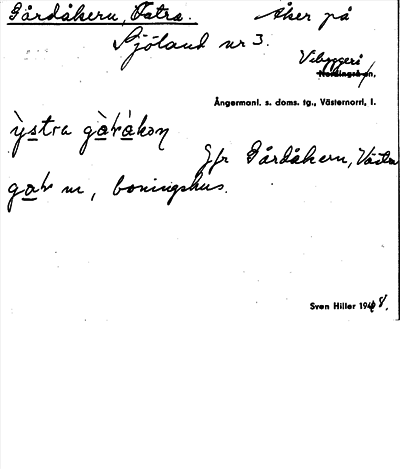 Gårdåkern, Östra. Åker på
Sjöland nr 3.
Vibyggerå
Nordingrå sn,
Ångermanl. s. doms. tg., Västernorrl. l.
ỳstra gàṛåkọṇ
Jfr Gårdåkern, Västra
gaṛ m, boningshus.
Sven Hiller 1948.